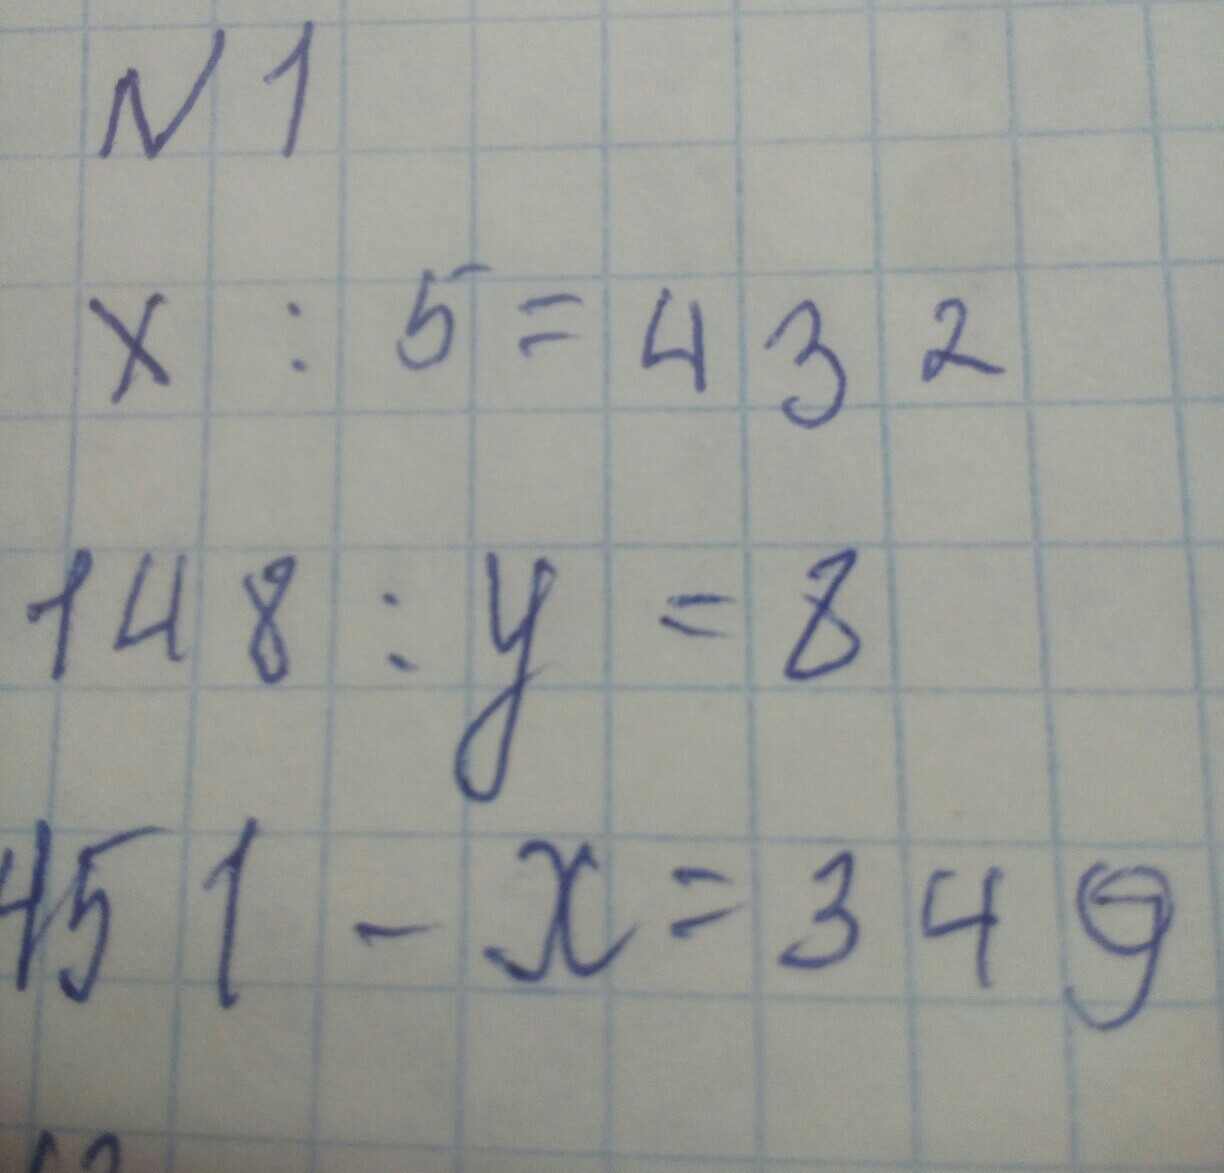 N 1
x : 5 = 432
148 : y = 8
451 - x = 349